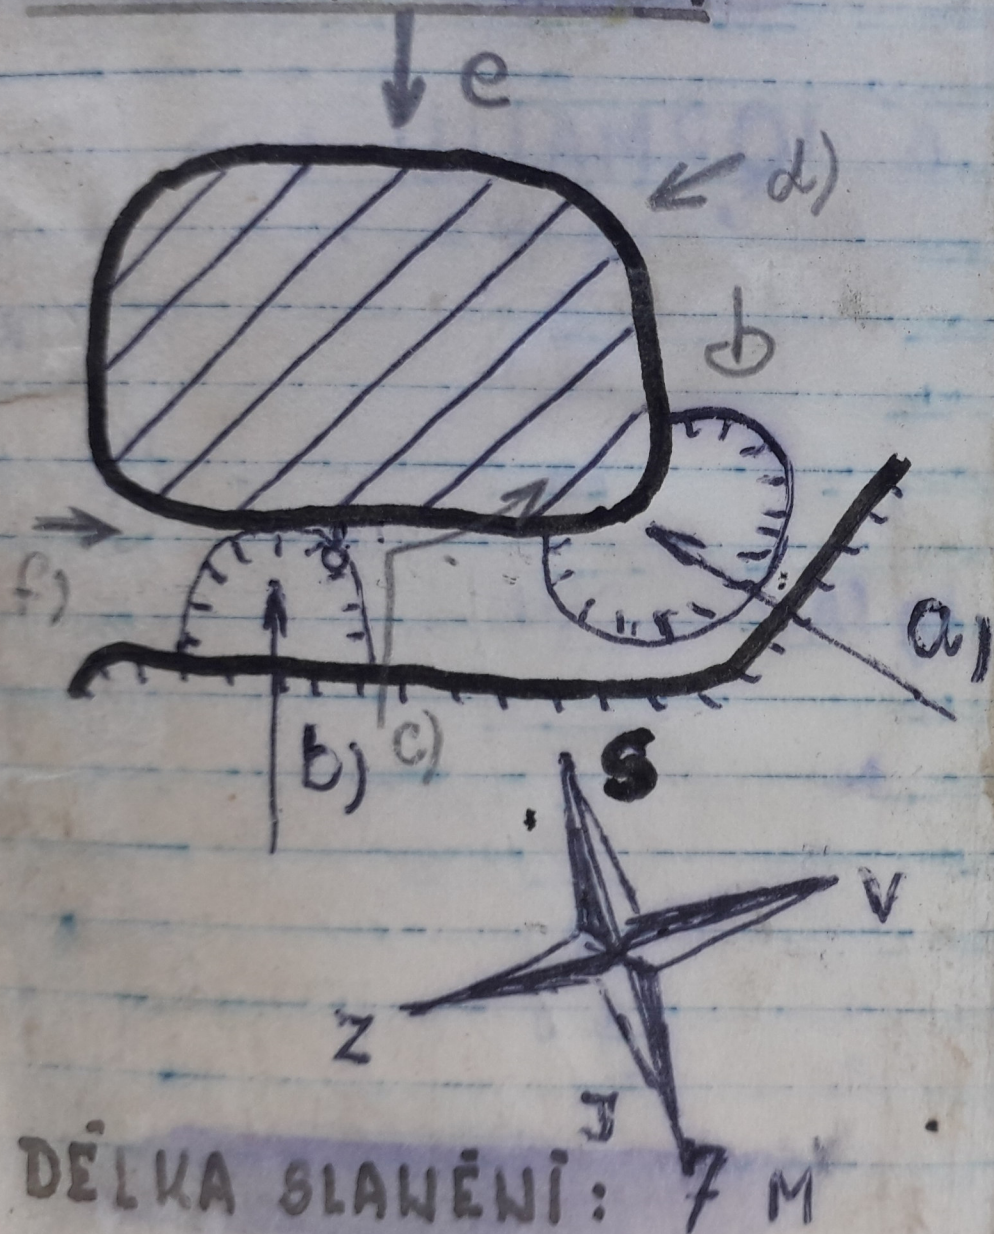 e
d)
b
f)
a)
b)
c)
S
V
Z
J
DÉLKA SLANĚNÍ: 7 M